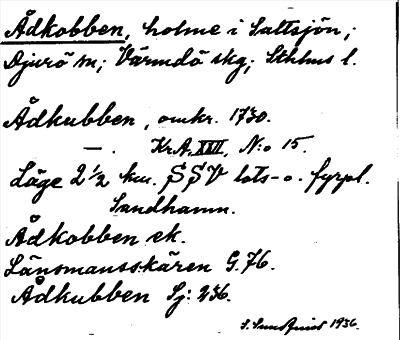 Ådkobben, holme i Saltsjön,
Djurö sn; Värmdö skg; Sthlms l.
Ådkubben, omkr. 1730.
— . Kr.A. XXII, N:o 15.
Läge 2 1/2 km. SSV lots- o. fyrpl.
Sandhamn.
Ådkobben ek.
Länsmansskären G.76.
Ådkubben Sj: 236.
1936.